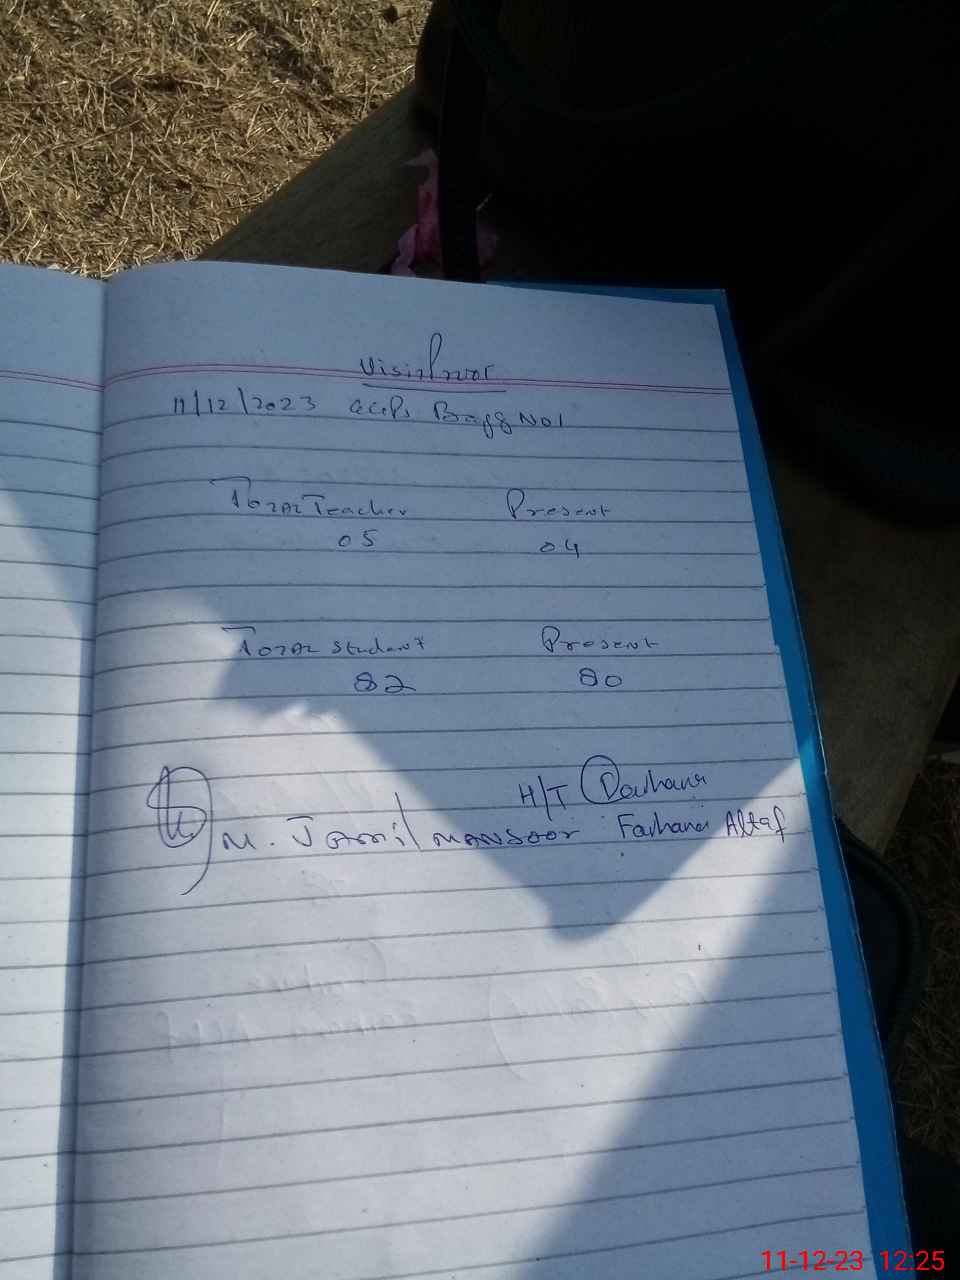 11/12/2023 GGPS Bagg No 1
Total Teacher Present
05 04
Total Student Present
82 80
H/T Farhana
M. Jamil Mansoor Farhana Altaf
11-12-23 12:25